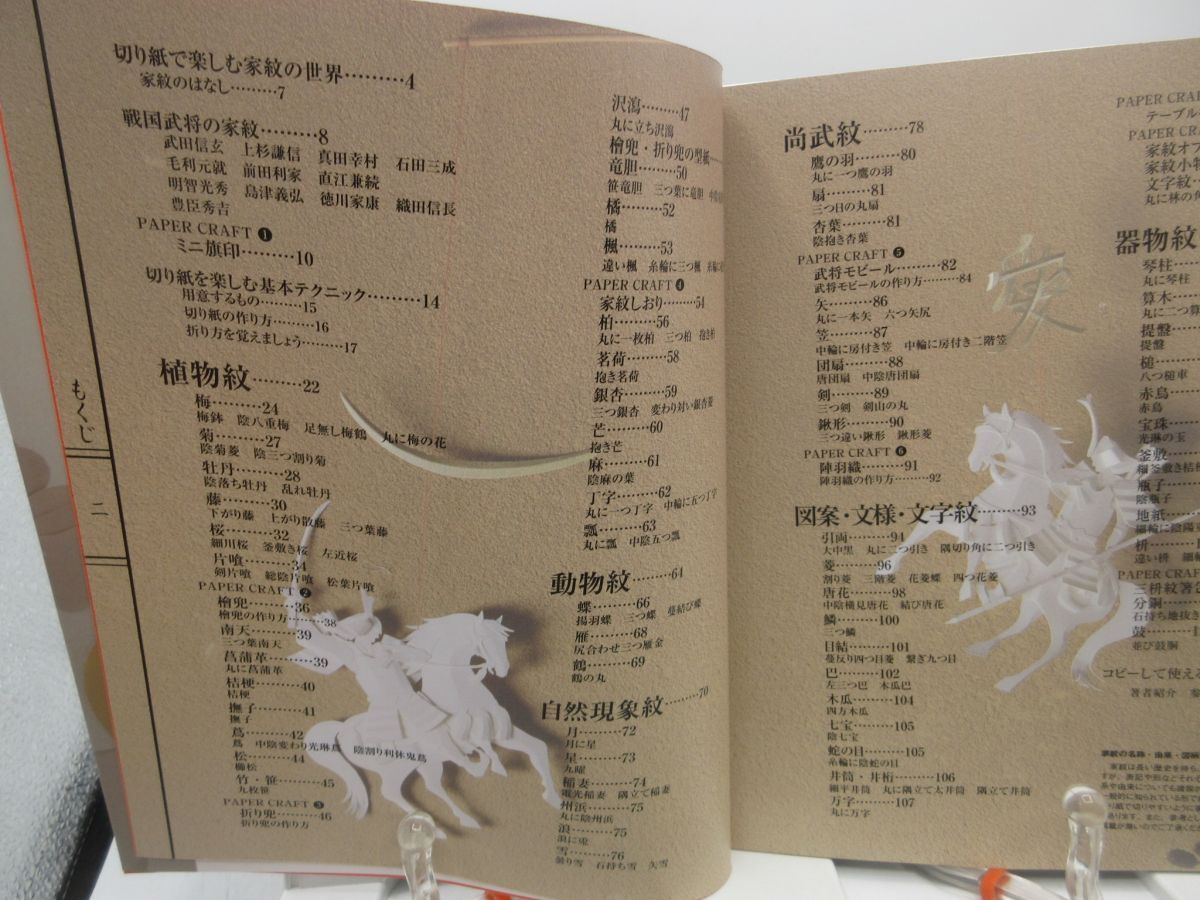 切り紙で楽しむ家紋の世界………4
家紋のはなし………7
戦国武将の家紋………8
武田信玄 上杉謙信 真田幸村 石田三成
毛利元就 前田利家 直江兼続
明智光秀 島津義弘 徳川家康 織田信長
豊臣秀吉
PAPER CRAFT ❶
ミニ旗印………10
切り紙を楽しむ基本テクニック………14
用意するもの………15
切り紙の作り方………16
折り方を覚えましょう………17
もくじ
二
植物紋………22
梅………24
梅鉢 陰八重梅 足無し梅鶴 丸に梅の花
菊………27
陰菊菱 陰三つ割り菊
牡丹………28
陰落ち牡丹 乱れ牡丹
藤………30
下がり藤 上がり散藤 三つ葉藤
桜………32
細川桜 釜敷き桜 左近桜
片喰………34
剣片喰 総陰片喰 松葉片喰
PAPER CRAFT ❷
檜兜………36
檜兜の作り方………38
南天………39
三つ葉南天
菖蒲革………39
丸に菖蒲革
桔梗………40
桔梗
撫子………41
撫子
蔦………42
蔦 中陰変わり光琳蔦 陰割り利休鬼蔦
松………44
櫛松
竹・笹………45
九枚笹
PAPER CRAFT ❸
折り兜………46
折り兜の作り方
沢瀉………47
丸に立ち沢瀉
檜兜・折り兜の型紙
竜胆………50
笹竜胆 三つ葉に竜胆
橘………52
橘
楓………53
違い楓 糸輪に三つ楓
PAPER CRAFT ❹
家紋しおり………54
柏………56
丸に一枚柏 三つ柏 抱き柏
茗荷………58
抱き茗荷
銀杏………59
三つ銀杏 変わり対い銀杏菱
芒………60
抱き芒
麻………61
陰麻の葉
丁字………62
丸に一つ丁字 中輪に五つ丁字
瓢………63
丸に瓢 中陰五つ瓢
動物紋………64
蝶………66
揚羽蝶 三つ蝶 蔓結び蝶
雁………68
尻合わせ三つ雁金
鶴………69
鶴の丸
自然現象紋………70
月………72
月に星
星………73
九曜
稲妻………74
電光稲妻 隅立て稲妻
州浜………75
丸に陰州浜
浪………75
浪に兎
雪………76
曇り雪 石持ち雪 矢雪
尚武紋………78
鷹の羽………80
丸に一つ鷹の羽
扇………81
三つ日の丸扇
杏葉………81
陰抱き杏葉
PAPER CRAFT ❺
武将モビール………82
武将モビールの作り方………84
矢………86
丸に一本矢 六つ矢尻
笠………87
中輪に房付き笠 中輪に房付き二階笠
団扇………88
唐団扇 中陰唐団扇
剣………89
三つ剣 剣山の丸
鍬形………90
三つ違い鍬形 鍬形菱
PAPER CRAFT ❻
陣羽織………91
陣羽織の作り方………92
図案・文様・文字紋………93
引両………94
大中黒 丸に二つ引き 隅切り角に二つ引き
菱………96
割り菱 三階菱 花菱蝶 四つ花菱
唐花………98
中陰横見唐花 結び唐花
鱗………100
三つ鱗
目結………101
蔓反り四つ目菱 繋ぎ九つ目
巴………102
左三つ巴 木瓜巴
木瓜………104
四方木瓜
七宝………105
陰七宝
蛇の目………105
糸輪に陰蛇の目
井筒・井桁………106
細平井筒 丸に隅立て太井筒 隅立て井筒
万字………107
丸に万字
PAPER CRAFT
テーブル
PAPER CRAFT
家紋オブ
家紋小物
文字紋
丸に林の角
器物紋
琴柱
丸に琴柱
算木
丸に二つ算
提盤
提盤
槌
八つ槌車
赤鳥
赤鳥
宝珠
光琳の玉
釜敷
細釜敷き桔
瓶子
陰瓶子
地紙
細輪に陰陽
枡
違い枡 細
PAPER CRAFT
三枡紋箸
分銅
石持ち地抜き
鼓
並び鼓胴
コピーして使える
著者紹介 参
家紋の名称・由来・図
家紋は長い歴史を持ち